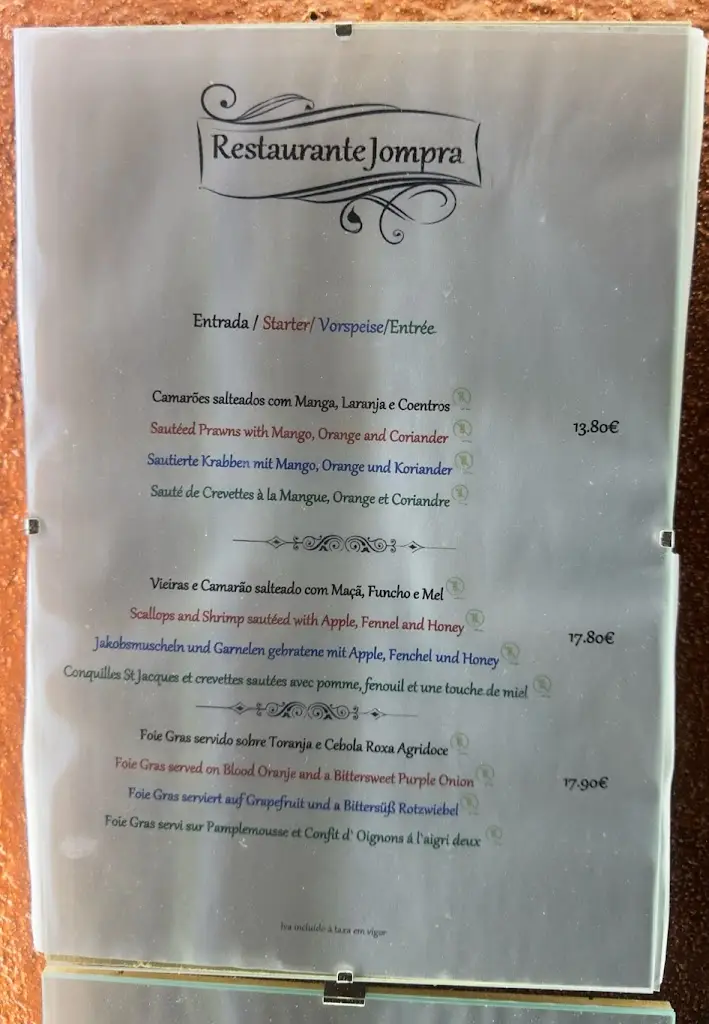 Restaurante Jompra
Entrada / Starter/ Vorspeise/Entrée
Camarões salteados com Manga, Laranja e Coentros
Sautéed Prawns with Mango, Orange and Coriander
13.80€
Sautierte Krabben mit Mango, Orange und Koriander
Sauté de Crevettes à la Mangue, Orange et Coriandre
Vieiras e Camarão salteado com Maçã, Funcho e Mel
Scallops and Shrimp sautéed with Apple, Fennel and Honey
17.80€
Jakobsmuscheln und Garnelen gebratene mit Apple, Fenchel und Honey
Conquilles St Jacques et crevettes sautées avec pomme, fenouil et une touche de miel
Foie Gras servido sobre Toranja e Cebola Roxa Agridoce
Foie Gras served on Blood Oranje and a Bittersweet Purple Onion
17.90€
Foie Gras serviert auf Grapefruit und a Bittersüß Rotzwiebel
Foie Gras servi sur Pamplemousse et Confit d' Oignons á l'aigri deux
Iva incluído à taxa em vigor